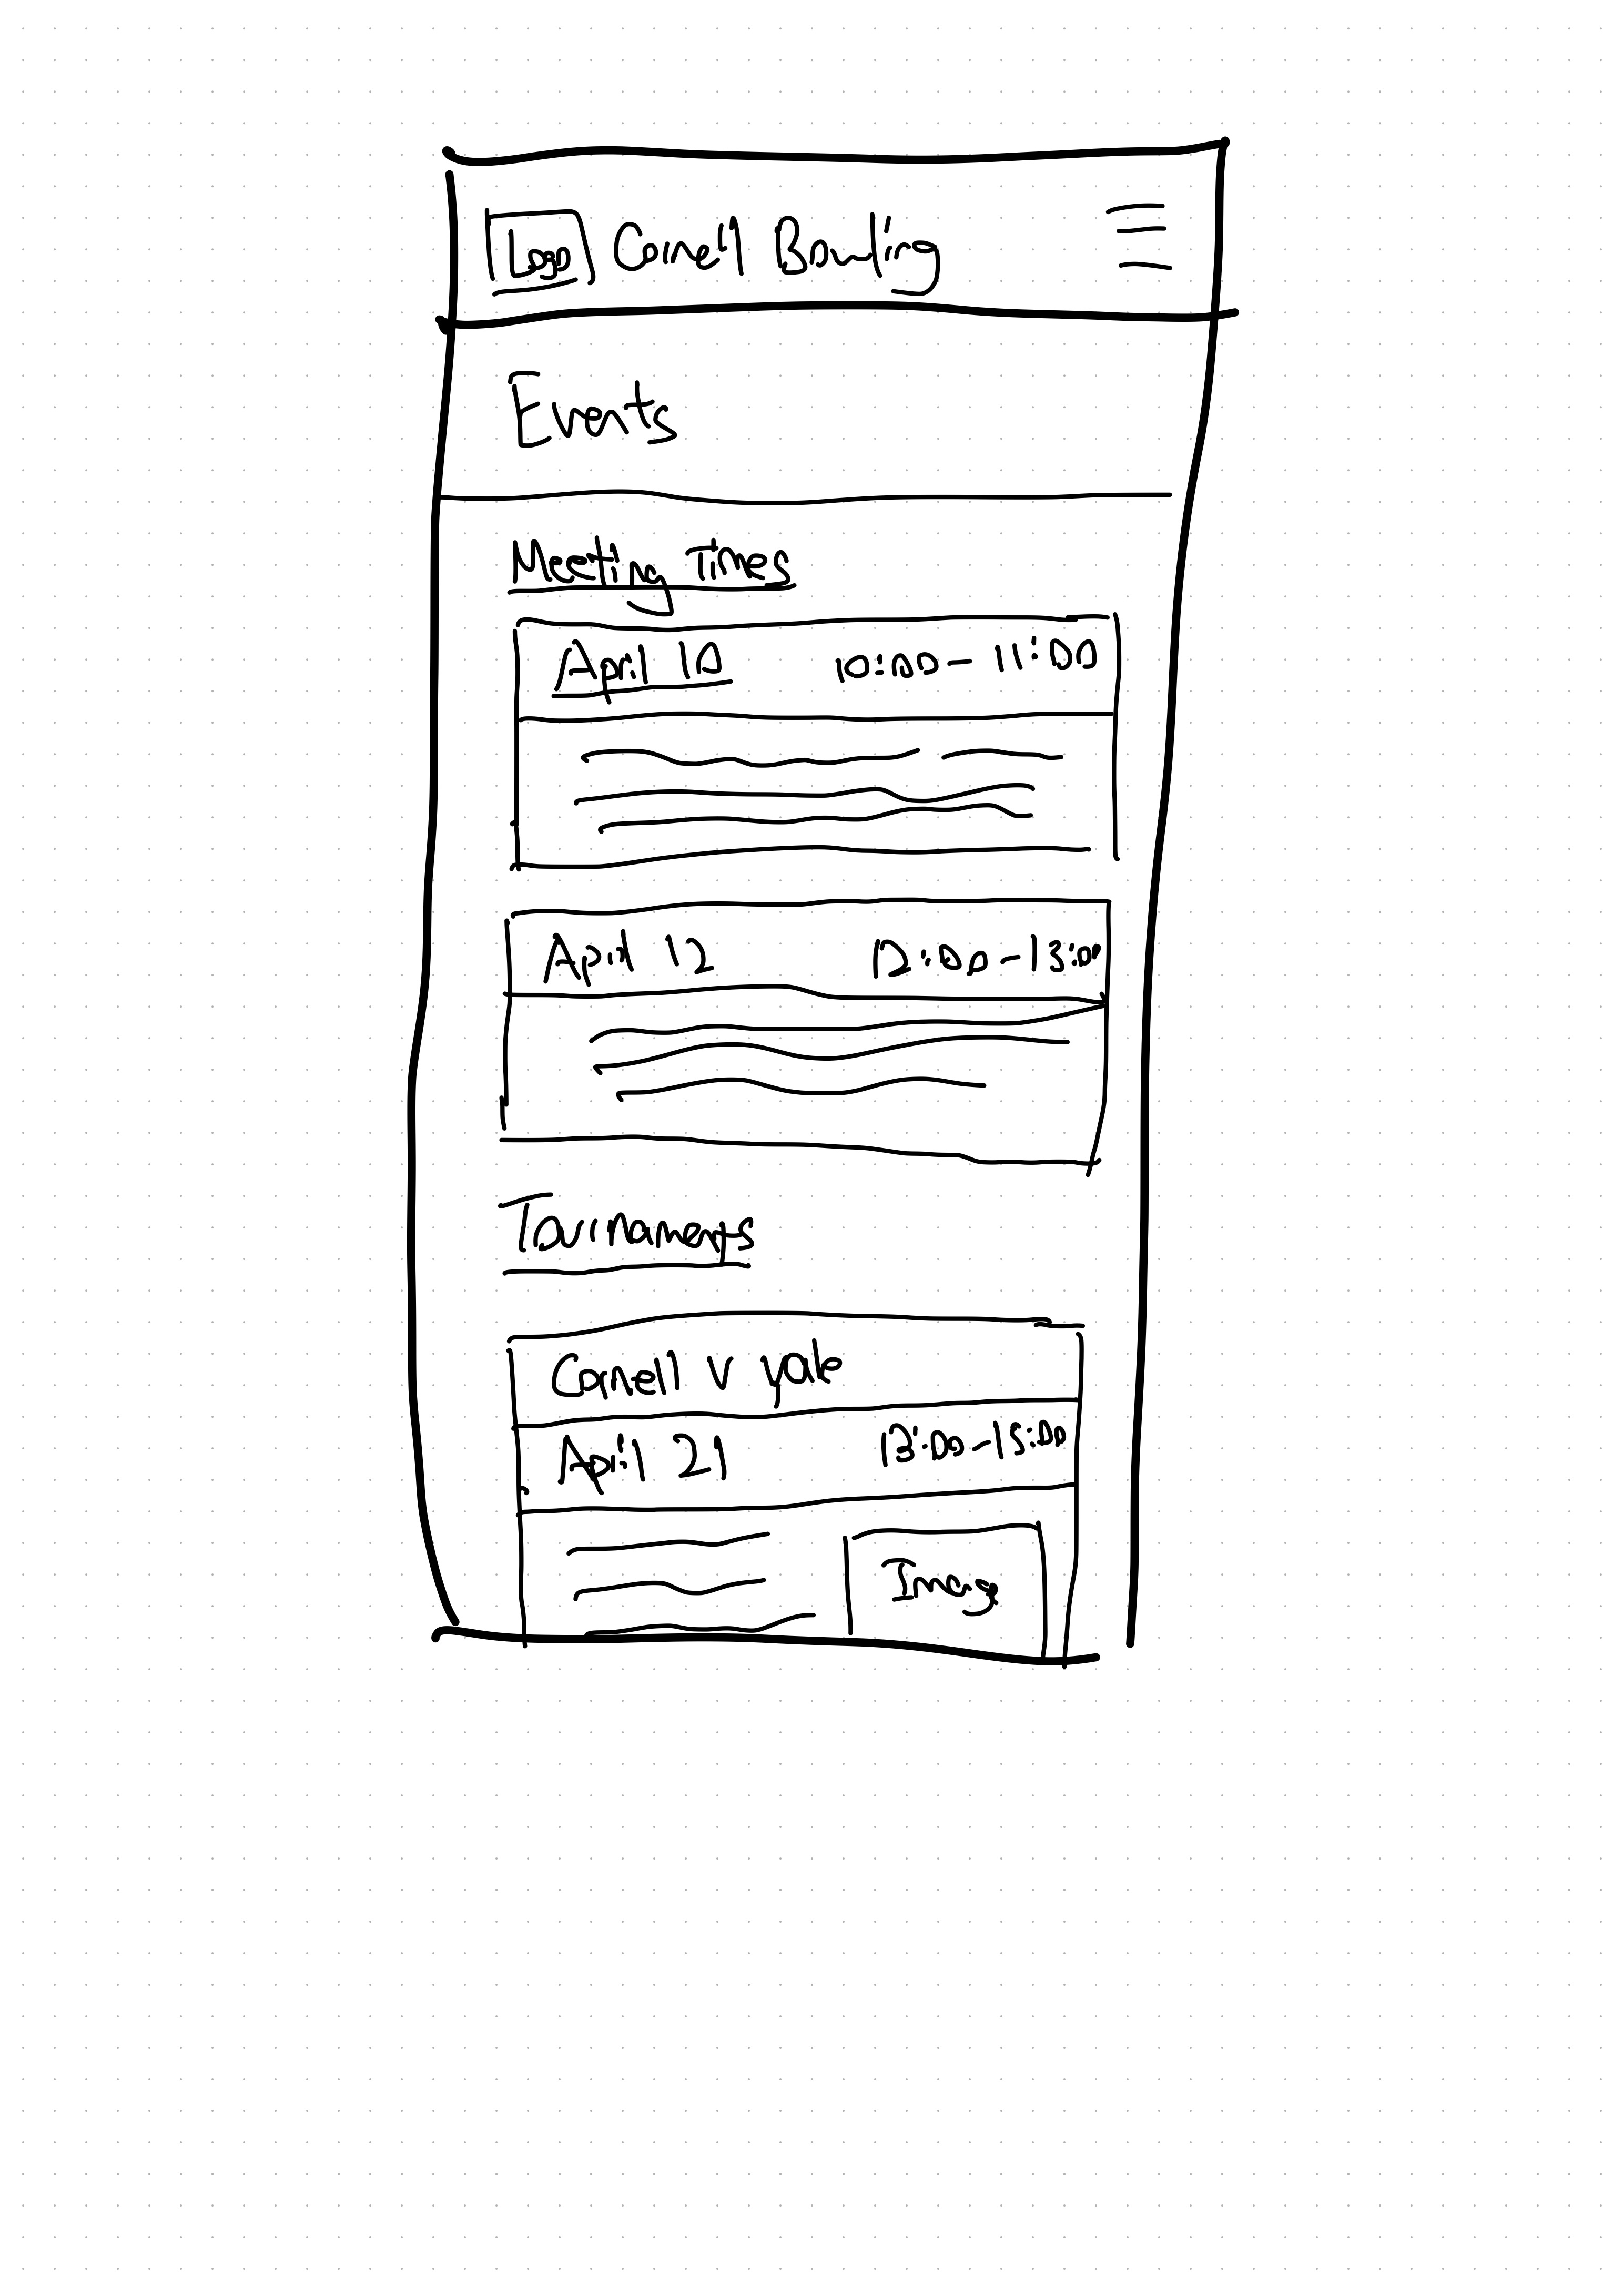 Logo Cornell Bowling
Events
Meeting Times
April 10 10:00 - 11:00
April 12 12:00 - 13:00
Tournaments
Cornell v Yale
April 21 13:00 - 15:00
Image